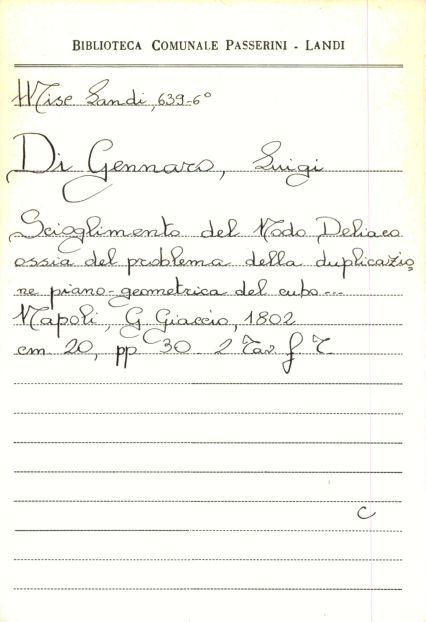 BIBLIOTECA COMUNALE PASSERINI - LANDI
Misc Landi, 639-6°
Di Gennaro, Luigi
Scioglimento del Nodo Deliaco
ossia del problema della duplicazio
ne piano-geometrica del cubo...
Napoli, G. Giaccio, 1802
cm 20, pp 30 2 Tav. f T.
C